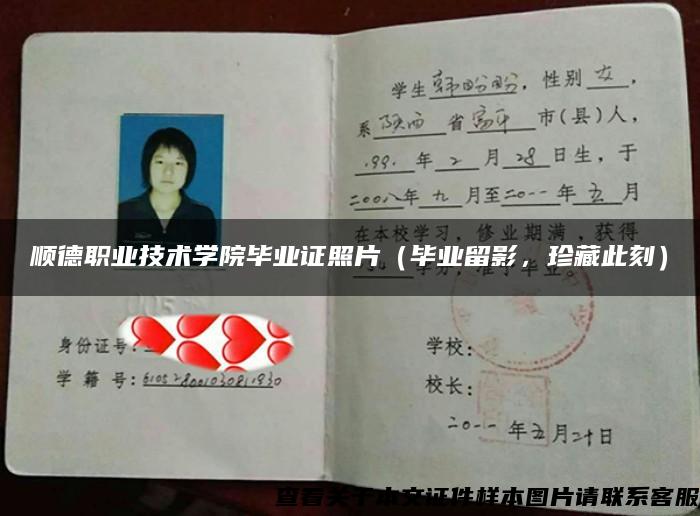 学生韩盼盼，性别女，
系陕西省富平市(县)人，
1991年2月28日生，于
二00八年九月至二0一一年五月
在本校学习，修业期满，获得
学分，准予毕业。
顺德职业技术学院毕业证照片（毕业留影，珍藏此刻）
身份证号:
学籍号:
学校:
校长:
二0一一年五月二十日
查看关于本文证件样本图片请联系客服